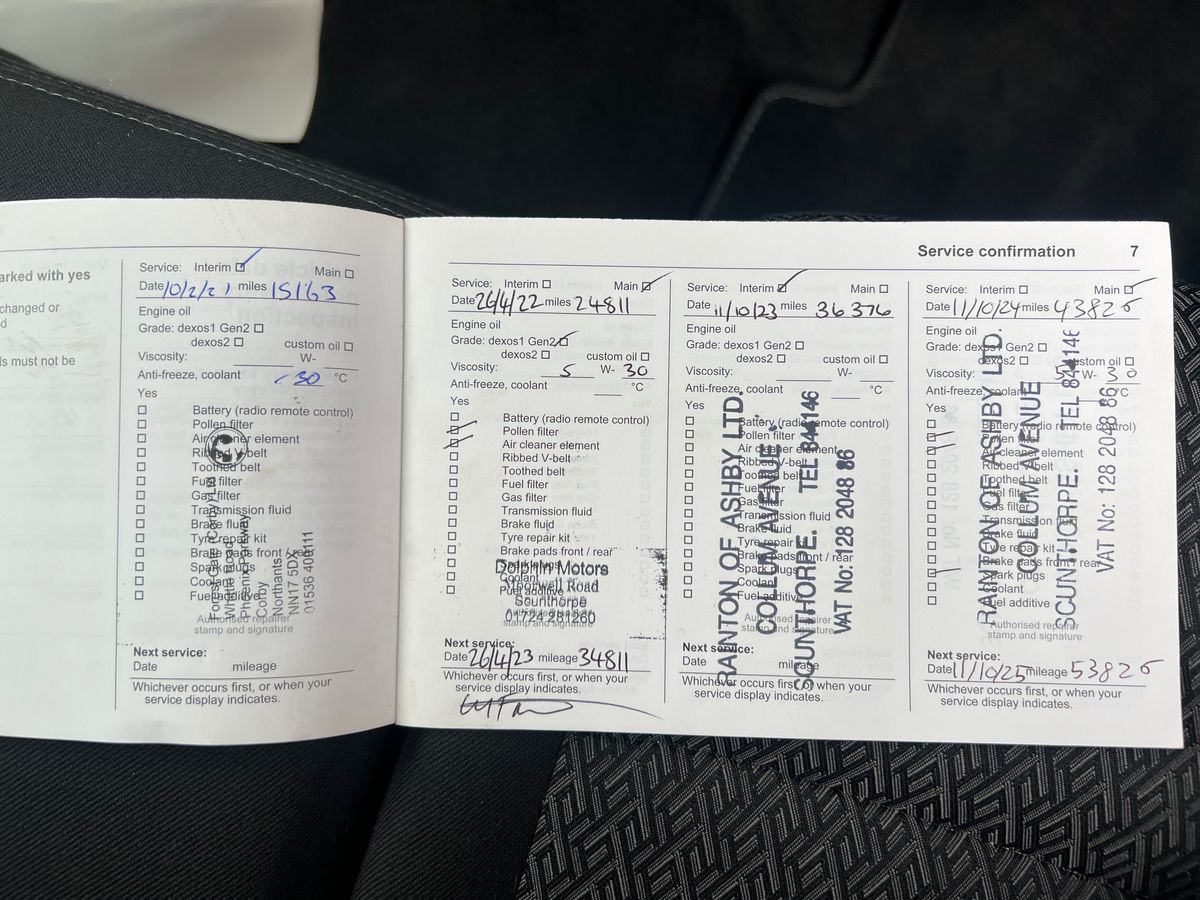 arked with yes
changed or
d
ls must not be
Service: Interim Main
Date 10/2/21 miles 15163
Engine oil
Grade: dexos1 Gen2
dexos2 custom oil
Viscosity: W-
Anti-freeze, coolant -30 °C
Yes
Battery (radio remote control)
Pollen filter
Air cleaner element
Ribbed V-belt
Toothed belt
Fuel filter
Gas filter
Transmission fluid
Brake fluid
Tyre repair kit
Brake pads front / rear
Spark plugs
Coolant
Fuel additive
Authorised repairer
stamp and signature
Forest Gate (Corby) Ltd
Phoenix Parkway
Corby
Northants
NN17 5DX
01536 40
Next service:
Date mileage
Whichever occurs first, or when your
service display indicates.
Service confirmation 7
Service: Interim Main
Date 26/4/22 miles 24811
Engine oil
Grade: dexos1 Gen2
dexos2 custom oil
Viscosity: 5 W- 30
Anti-freeze, coolant °C
Yes
Battery (radio remote control)
Pollen filter
Air cleaner element
Ribbed V-belt
Toothed belt
Fuel filter
Gas filter
Transmission fluid
Brake fluid
Tyre repair kit
Brake pads front / rear
Spark plugs
Coolant
Fuel additive
Dolphin Motors
Road
Scunthorpe
01724 281260
Authorised repairer
stamp and signature
Next service:
Date 26/4/23 mileage 34811
Whichever occurs first, or when your
service display indicates.
Service: Interim Main
Date 11/10/23 miles 36376
Engine oil
Grade: dexos1 Gen2
dexos2 custom oil
Viscosity: W-
Anti-freeze, coolant °C
Yes
Battery (radio remote control)
Pollen filter
Air cleaner element
Ribbed V-belt
Toothed belt
Fuel filter
Gas filter
Transmission fluid
Brake fluid
Tyre repair kit
Brake pads front / rear
Spark plugs
Coolant
Fuel additive
Authorised repairer
stamp and signature
RAINTON OF ASHBY LTD.
COLLUM AVENUE
SCUNTHORPE. TEL 844146
VAT No: 128 2048 86
Next service:
Date mileage
Whichever occurs first, or when your
service display indicates.
Service: Interim Main
Date 11/10/24 miles 43826
Engine oil
Grade: dexos1 Gen2
dexos2 custom oil
Viscosity: 5 W- 30
Anti-freeze, coolant °C
Yes
Battery (radio remote control)
Pollen filter
Air cleaner element
Ribbed V-belt
Toothed belt
Fuel filter
Gas filter
Transmission fluid
Brake fluid
Tyre repair kit
Brake pads front / rear
Spark plugs
Coolant
Fuel additive
Authorised repairer
stamp and signature
RAINTON OF ASHBY LTD.
COLLUM AVENUE
SCUNTHORPE. TEL 844146
VAT No: 128 2048 86
Next service:
Date 11/10/25 mileage 53826
Whichever occurs first, or when your
service display indicates.